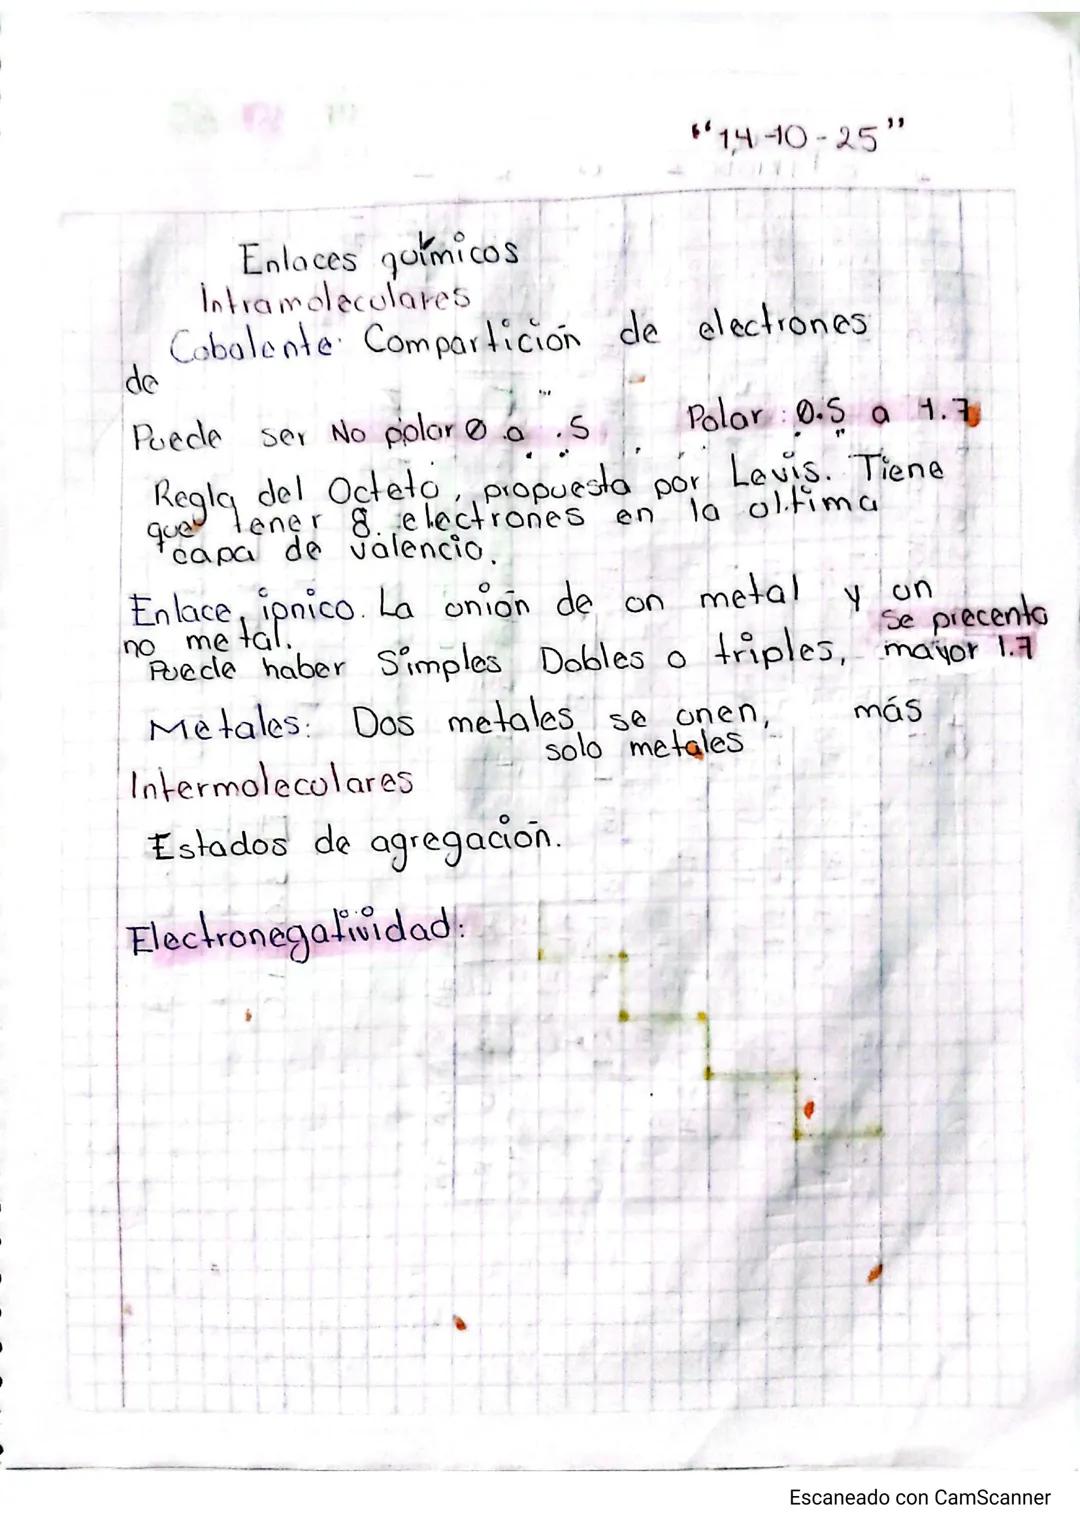 "14-10-25"
Enlaces químicos
Intramoleculares
Cobalente: Compartición de electrones
de
Puede ser No polar 0 a .5 Polar: 0.5 a 1.7
Regla del Octeto, propuesta por Levis. Tiene
que tener 8 electrones en la oltima
capa de valencia.
Enlace ionico. La onión de on metal y on
no metal. Se precenta
Puede haber Simples Dobles o triples, mayor 1.7
Metales: Dos metales se onen, más
solo metales
Intermoleculares
Estados de agregación.
Electronegatividad:
Escaneado con CamScanner